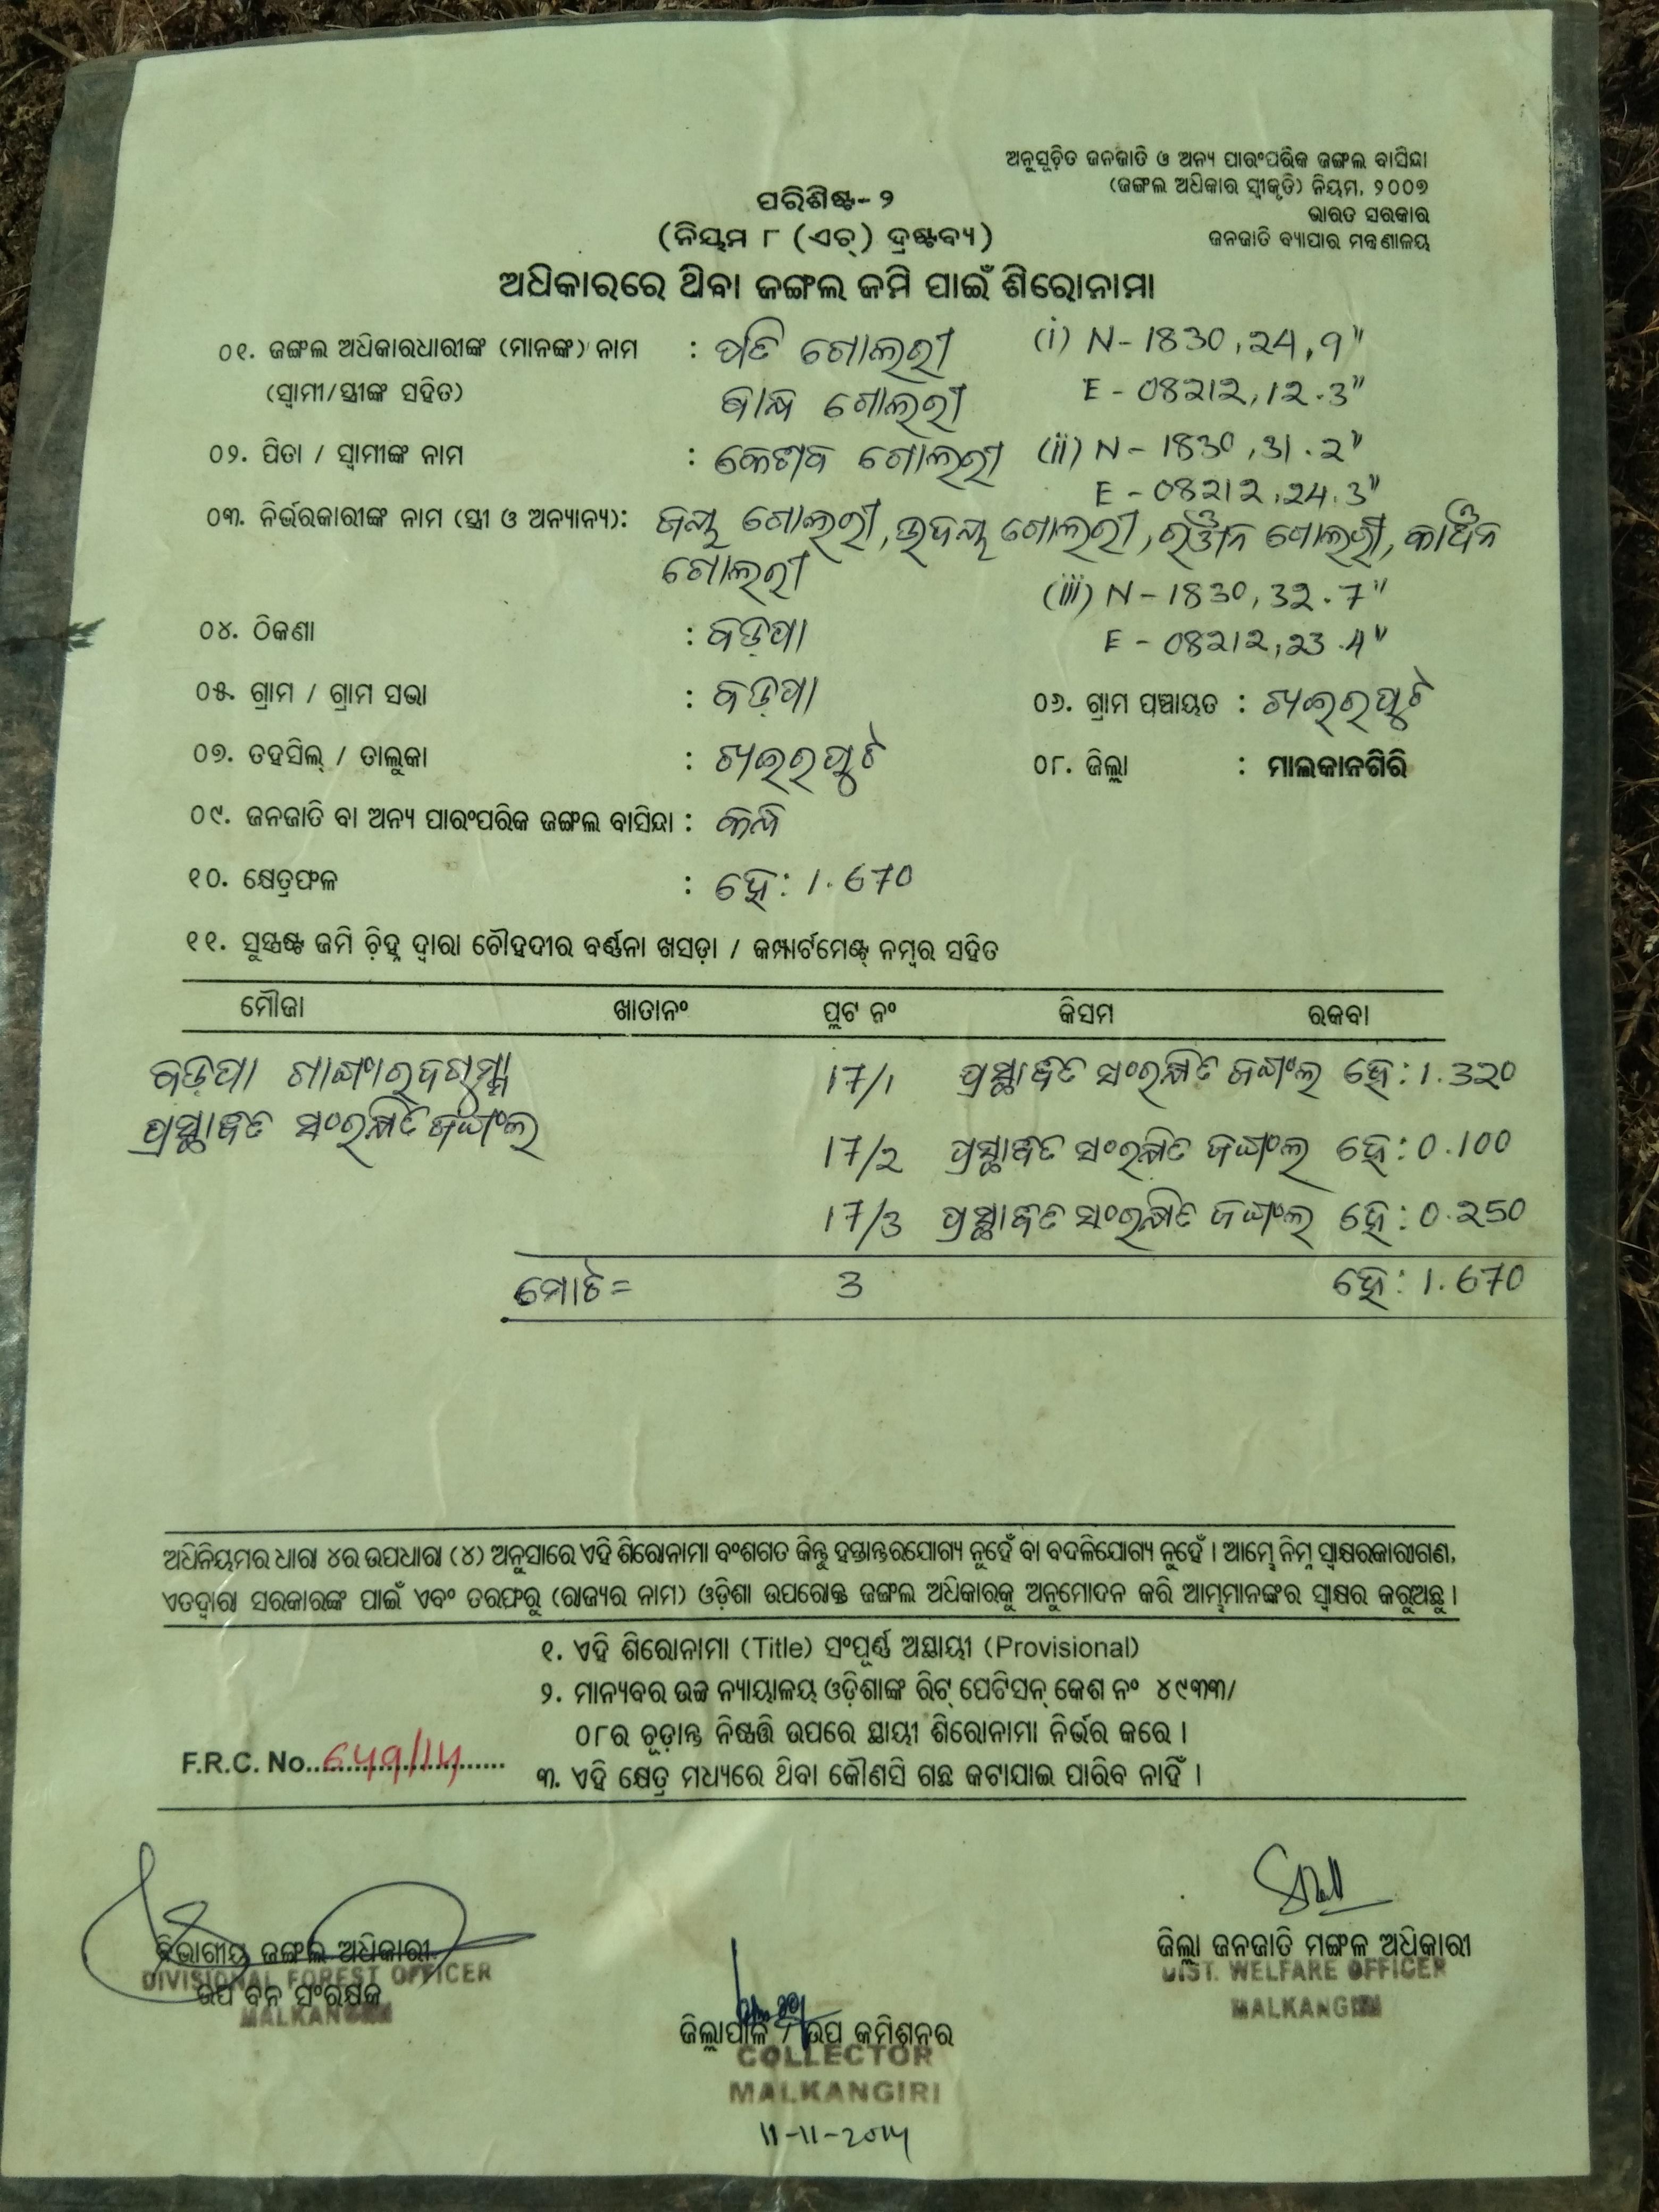 ଅନୁସୂଚିତ ଜନଜାତି ଓ ଅନ୍ୟ ପାରଂପରିକ ଜଙ୍ଗଲ ବାସିନ୍ଦା
(ଜଙ୍ଗଲ ଅଧିକାର ସ୍ୱୀକୃତି) ନିୟମ, ୨୦୦୭
ଭାରତ ସରକାର
ଜନଜାତି ବ୍ୟାପାର ମନ୍ତ୍ରଣାଳୟ
ପରିଶିଷ୍ଟ- ୨
(ନିୟମ ୮ (ଏଚ୍) ଦ୍ରଷ୍ଟବ୍ୟ)
ଅଧିକାରରେ ଥିବା ଜଙ୍ଗଲ ଜମି ପାଇଁ ଶିରୋନାମା
୦୧. ଜଙ୍ଗଲ ଅଧିକାରଧାରୀଙ୍କ (ମାନଙ୍କ) ନାମ : ଗୋଲରୀ (i) N-1830,24,9"
(ସ୍ୱାମୀ/ସ୍ତ୍ରୀଙ୍କ ସହିତ) ଗୋଲରୀ E-08212,12.3"
୦୨. ପିତା / ସ୍ୱାମୀଙ୍କ ନାମ : କେଶବ ଗୋଲରୀ (ii) N-1830,31.2"
E-08212,24.3"
୦୩. ନିର୍ଭରକାରୀଙ୍କ ନାମ (ସ୍ତ୍ରୀ ଓ ଅନ୍ୟାନ୍ୟ): ଗୋଲରୀ, ଉଦୟ ଗୋଲରୀ, ଗୋଲରୀ,
ଗୋଲରୀ
(iii) N-1830,32.7"
୦୪. ଠିକଣା : ବଡ଼ପା E-08212,23.4"
୦୫. ଗ୍ରାମ / ଗ୍ରାମ ସଭା : ବଡ଼ପା ୦୬. ଗ୍ରାମ ପଞ୍ଚାୟତ : ଖଇରପୁଟ
୦୭. ତହସିଲ୍ / ତାଲୁକା : ଖଇରପୁଟ ୦୮. ଜିଲ୍ଲା : ମାଲକାନଗିରି
୦୯. ଜନଜାତି ବା ଅନ୍ୟ ପାରଂପରିକ ଜଙ୍ଗଲ ବାସିନ୍ଦା :
୧୦. କ୍ଷେତ୍ରଫଳ : ହେ: 1.670
୧୧. ସୁସ୍ପଷ୍ଟ ଜମି ଚିହ୍ନ ଦ୍ୱାରା ଚୌହଦୀର ବର୍ଣ୍ଣନା ଖସଡ଼ା / କମ୍ପାର୍ଟମେଣ୍ଟ୍ ନମ୍ବର ସହିତ
ମୌଜା ଖାତାନଂ ପ୍ଲଟ ନଂ କିସମ ରକବା
ବଡ଼ପା 17/1 ପ୍ରସ୍ଥାବିତ ସଂରକ୍ଷିତ ଜଙ୍ଗଲ ହେ: 1.320
ପ୍ରସ୍ଥାବିତ ସଂରକ୍ଷିତ ଜଙ୍ଗଲ
17/2 ପ୍ରସ୍ଥାବିତ ସଂରକ୍ଷିତ ଜଙ୍ଗଲ ହେ: 0.100
17/3 ପ୍ରସ୍ଥାବିତ ସଂରକ୍ଷିତ ଜଙ୍ଗଲ ହେ: 0.250
ମୋଟ= 3 ହେ: 1.670
ଅଧିନିୟମର ଧାରା ୪ର ଉପଧାରା (୪) ଅନୁସାରେ ଏହି ଶିରୋନାମା ବଂଶଗତ କିନ୍ତୁ ହସ୍ତାନ୍ତରଯୋଗ୍ୟ ନୁହେଁ ବା ବଦଳିଯୋଗ୍ୟ ନୁହେଁ । ଆମ୍ଭେ ନିମ୍ନ ସ୍ୱାକ୍ଷରକାରୀଗଣ,
ଏତଦ୍ୱାରା ସରକାରଙ୍କ ପାଇଁ ଏବଂ ତରଫରୁ (ରାଜ୍ୟର ନାମ) ଓଡ଼ିଶା ଉପରୋକ୍ତ ଜଙ୍ଗଲ ଅଧିକାରକୁ ଅନୁମୋଦନ କରି ଆମ୍ଭମାନଙ୍କର ସ୍ୱାକ୍ଷର କରୁଅଛୁ ।
୧. ଏହି ଶିରୋନାମା (Title) ସଂପୂର୍ଣ୍ଣ ଅସ୍ଥାୟୀ (Provisional)
୨. ମାନ୍ୟବର ଉଚ୍ଚ ନ୍ୟାୟାଳୟ ଓଡ଼ିଶାଙ୍କ ରିଟ୍ ପେଟିସନ୍ କେଶ ନଂ ୪୯୩୩/
୦୮ର ଚୂଡ଼ାନ୍ତ ନିଷ୍ପତ୍ତି ଉପରେ ସ୍ଥାୟୀ ଶିରୋନାମା ନିର୍ଭର କରେ ।
F.R.C. No. 649/14
୩. ଏହି କ୍ଷେତ୍ର ମଧ୍ୟରେ ଥିବା କୌଣସି ଗଛ କଟାଯାଇ ପାରିବ ନାହିଁ ।
ବିଭାଗୀୟ ଜଙ୍ଗଲ ଅଧିକାରୀ
DIVISIONAL FOREST OFFICER
ଉପ ବନ ସଂରକ୍ଷକ
MALKANGIRI
ଜିଲ୍ଲା ଜନଜାତି ମଙ୍ଗଳ ଅଧିକାରୀ
DIST. WELFARE OFFICER
MALKANGIRI
ଜିଲ୍ଲାପାଳ / ଉପ କମିଶନର
COLLECTOR
MALKANGIRI
11-11-2014